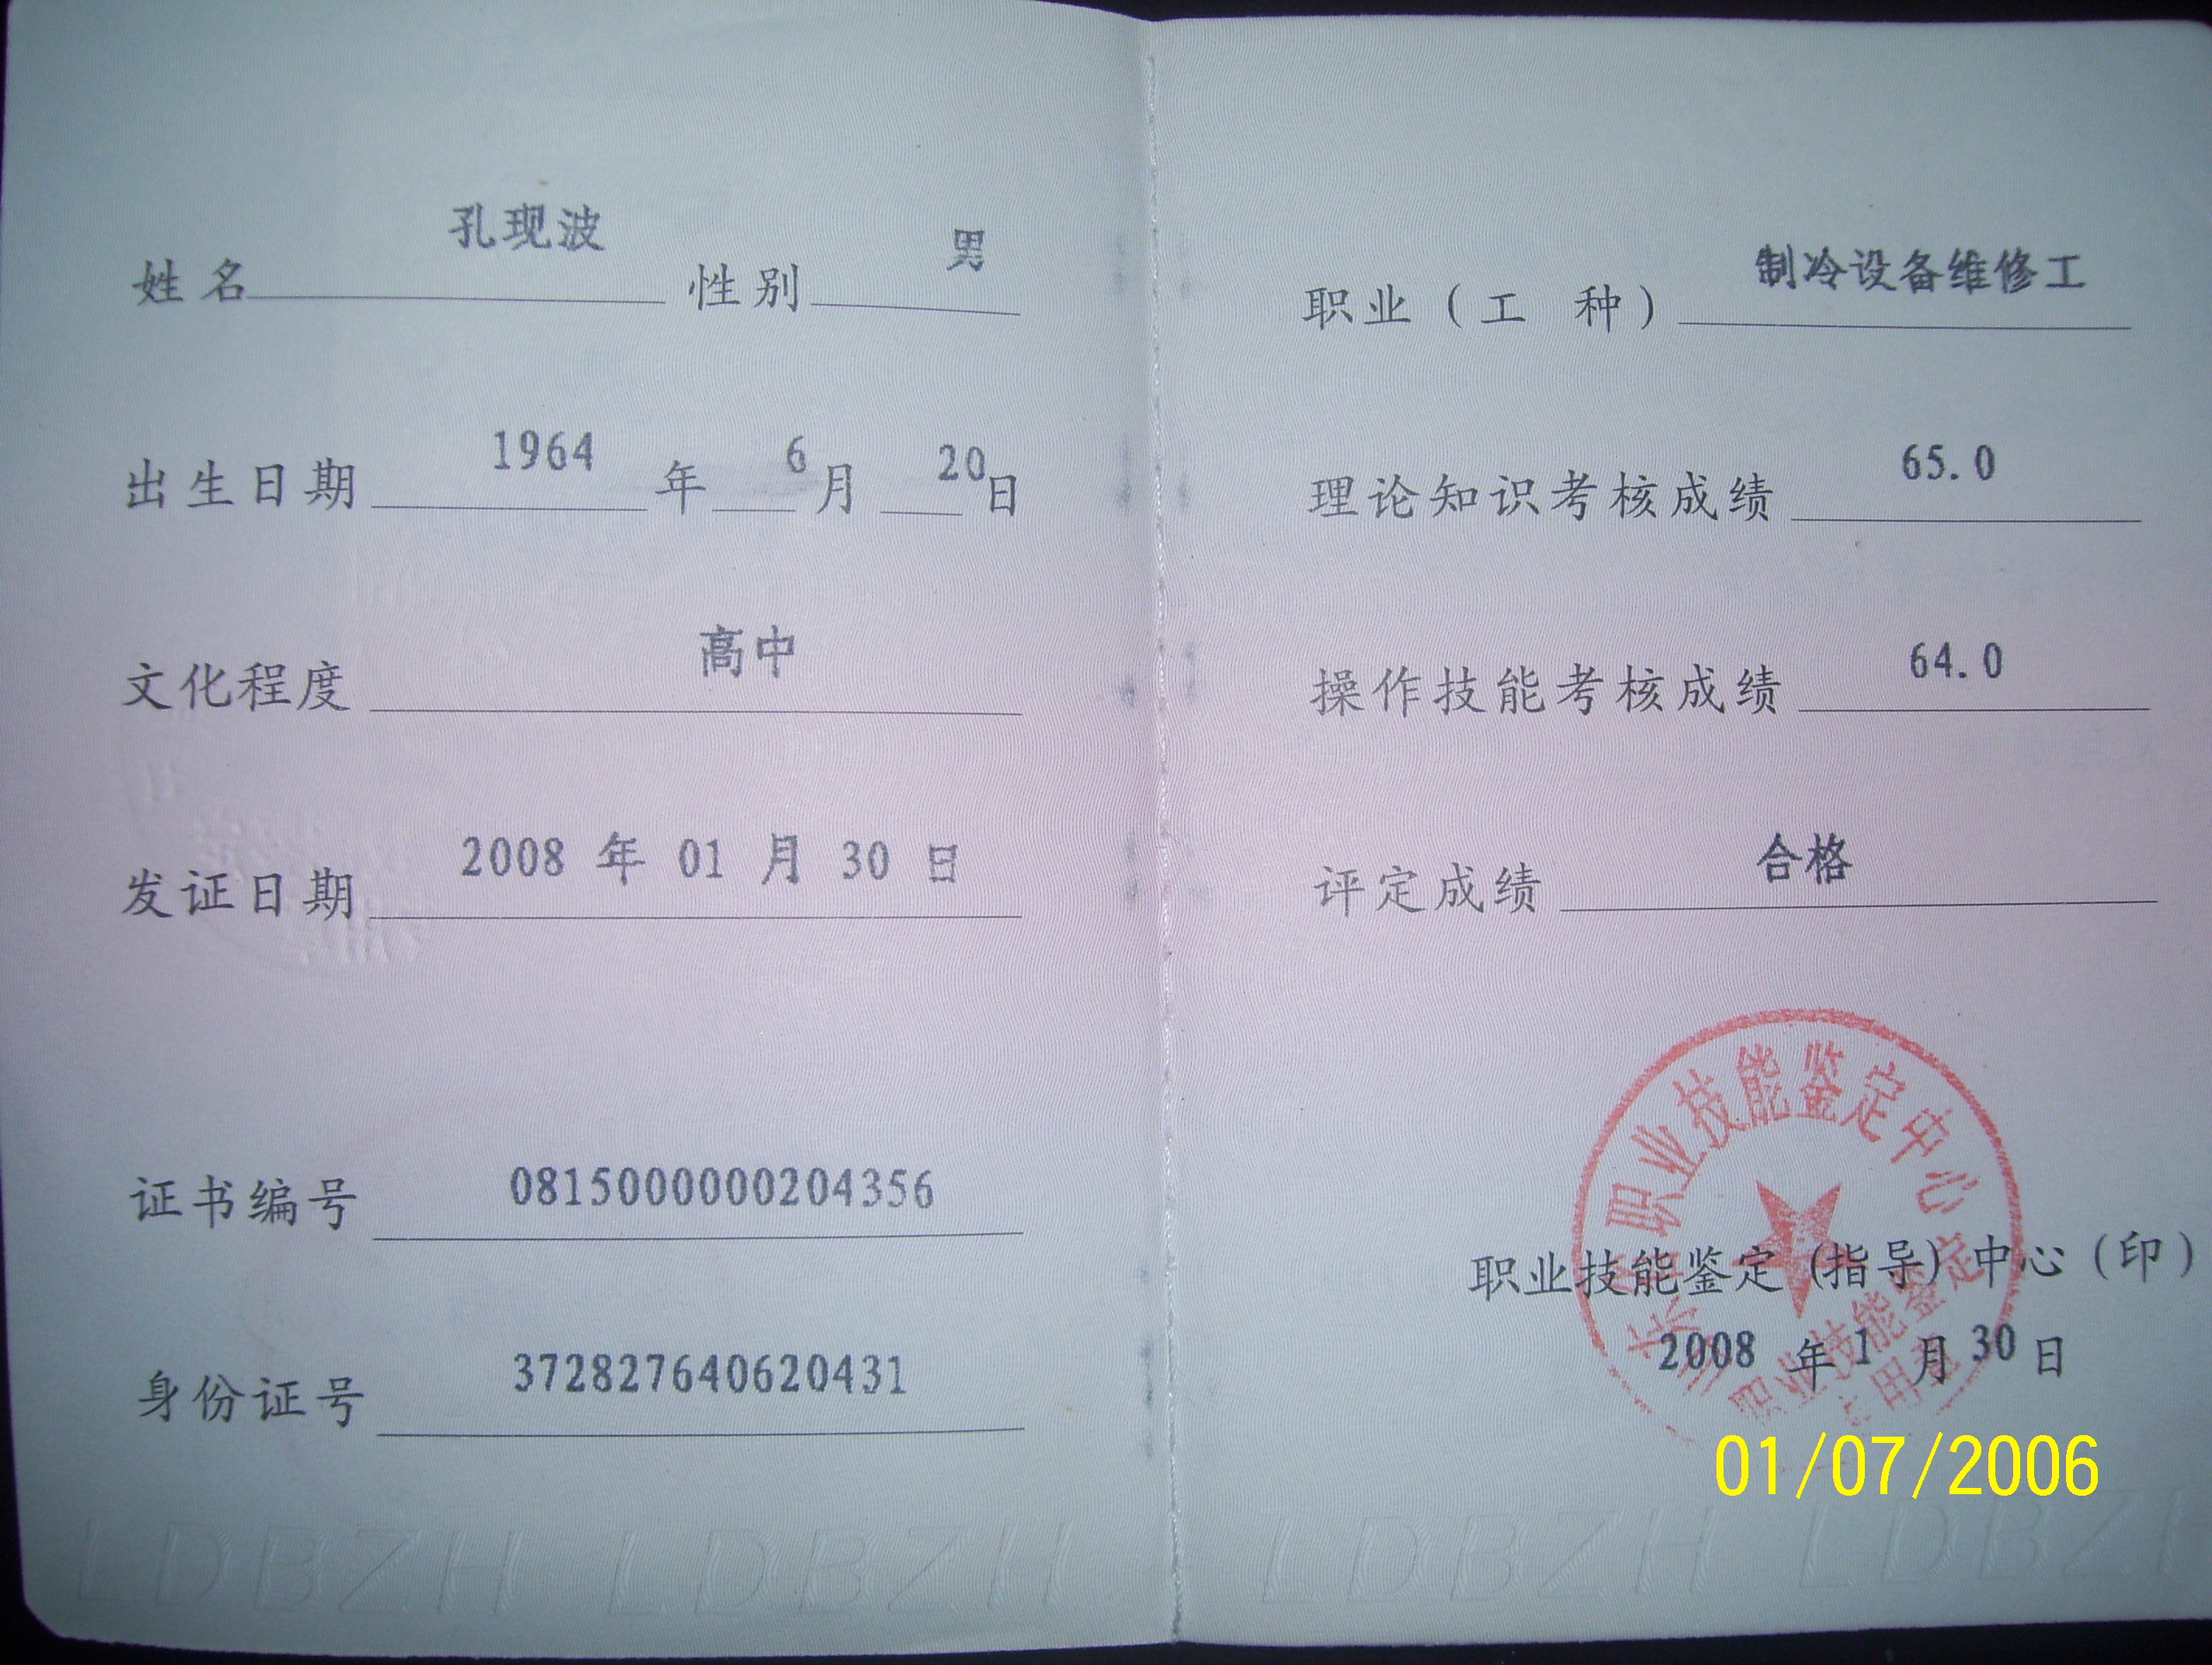 姓名 孔现波 性别 男
出生日期 1964 年 6 月 20 日
文化程度 高中
发证日期 2008 年 01 月 30 日
证书编号 0815000000204356
身份证号 372827640620431
职业（工 种） 制冷设备维修工
理论知识考核成绩 65.0
操作技能考核成绩 64.0
评定成绩 合格
职业技能鉴定中心
职业技能鉴定(指导)中心（印）
2008 年 1 月 30 日
职业技能鉴定
专用章
01/07/2006
LDBZH LDBZH LDBZH LDBZH